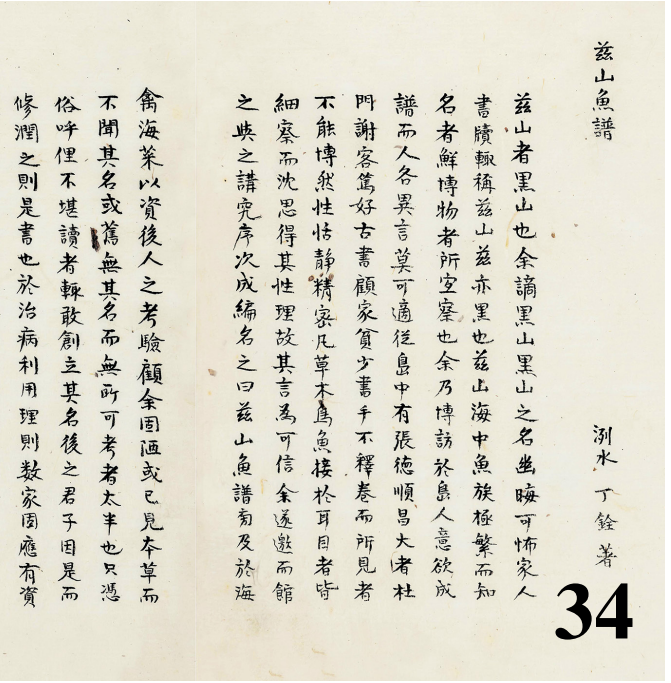 茲山魚譜 洌水 丁銓 著
茲山者黒山也余謫黒山黒山之名幽晦可怖家人
書牘輒稱茲山茲亦黒也茲山海中魚族極繁而知
名者鮮博物者所宜察也余乃博訪於島人意欲成
譜而人各異言莫可適從島中有張德順昌大者杜
門謝客篤好古書顧家貧少書手不釋卷而所見者
不能博然性恬靜精密凡草木鳥魚接於耳目者皆
細察而沈思得其性理故其言為可信余遂邀而館
之與之講究序次成編名之曰茲山魚譜旁及於海
禽海菜以資後人之考驗顧余固陋或已見本草而
不聞其名或舊無其名而無所可考者太半也只憑
俗呼俚不堪讀者輒敢創立其名後之君子因是而
修潤之則是書也於治病利用理則数家固應有資
34